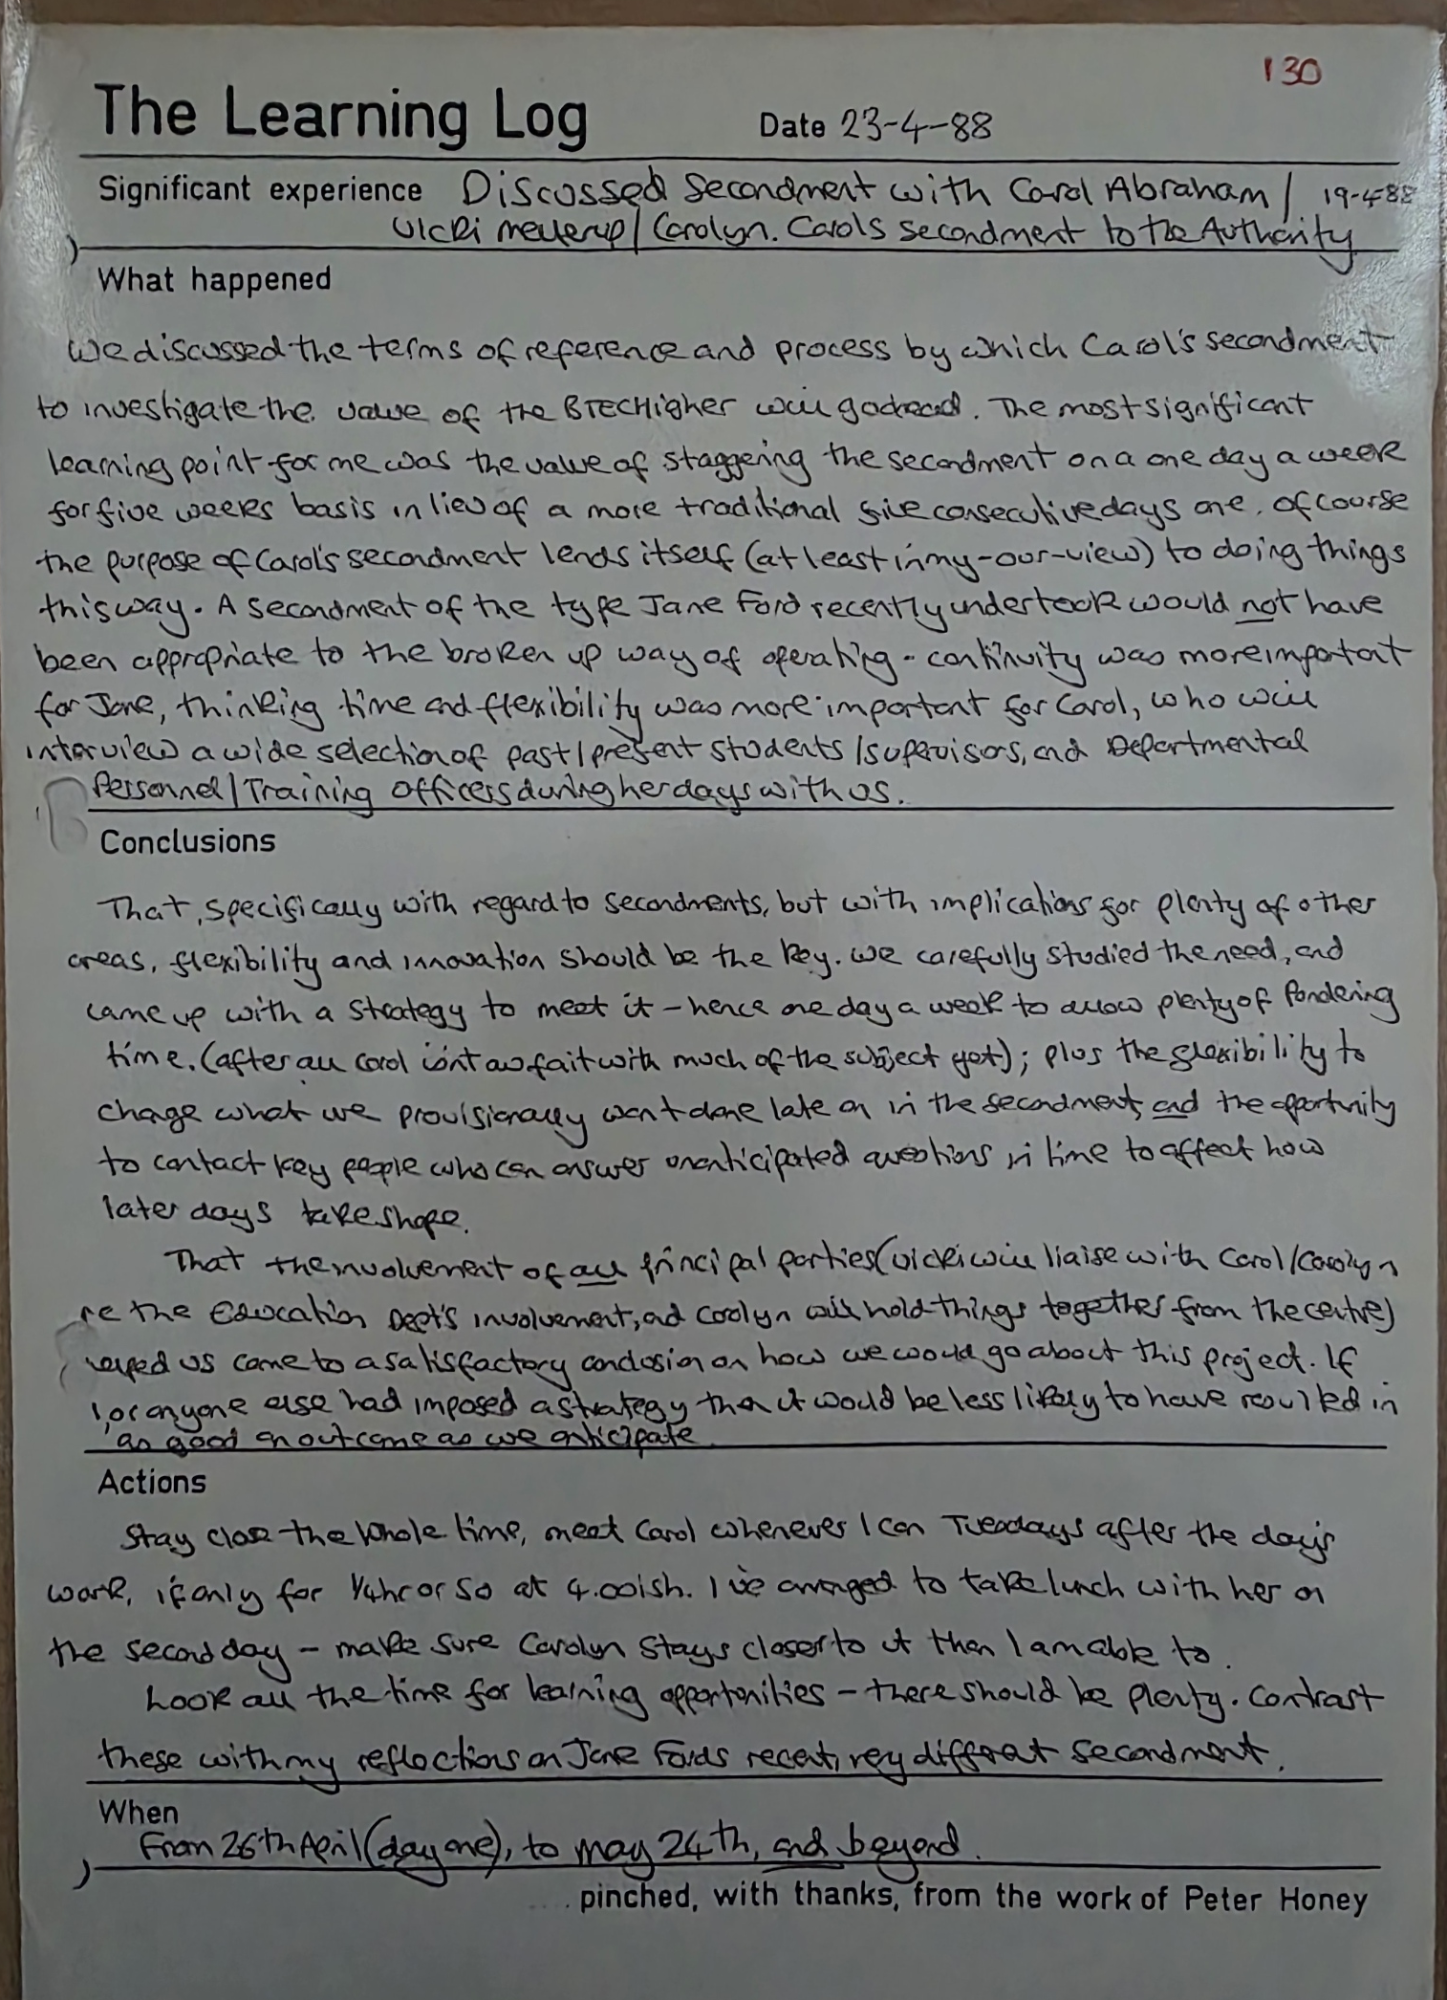 130
The Learning Log Date 23-4-88
Significant experience Discussed Secondment with Carol Abraham / 19-4-88
Vicki Mellerup / Carolyn. Carols secondment to the Authority
What happened
We discussed the terms of reference and process by which Carol's secondment
to investigate the value of the BTEC Higher will go ahead. The most significant
learning point for me was the value of staggering the secondment on a one day a week
for five weeks basis in lieu of a more traditional five consecutive days one. Of course
the purpose of Carol's secondment lends itself (at least in my-our-view) to doing things
this way. A secondment of the type Jane Ford recently undertook would not have
been appropriate to the broken up way of operating - continuity was more important
for Jane, thinking time and flexibility was more important for Carol, who will
interview a wide selection of past/present students/supervisors, and Departmental
Personnel/Training Officers during her days with us.
Conclusions
That, specifically with regard to secondments, but with implications for plenty of other
areas, flexibility and innovation should be the key. We carefully studied the need, and
came up with a strategy to meet it - hence one day a week to allow plenty of pondering
time. (after all Carol isn't au fait with much of the subject yet); plus the flexibility to
change what we provisionally want done late on in the secondment, and the opportunity
to contact key people who can answer unanticipated questions in time to affect how
later days take shape.
That the involvement of all principal parties (Vicki will liaise with Carol/Carolyn
re the Education Dept's involvement, and Carolyn will hold things together from the centre)
helped us come to a satisfactory conclusion on how we would go about this project. If
I, or anyone else had imposed a strategy then it would be less likely to have resulted in
as good an outcome as we anticipate.
Actions
Stay close the whole time, meet Carol whenever I can Tuesdays after the day's
work, if only for 1/4hr or so at 4.00ish. I've arranged to take lunch with her on
the second day - make sure Carolyn stays closer to it than I am able to.
Look all the time for learning opportunities - there should be plenty. Contrast
these with my reflections on Jane Fords recent, very different secondment.
When
From 26th April (day one), to May 24th, and beyond.
.... pinched, with thanks, from the work of Peter Honey